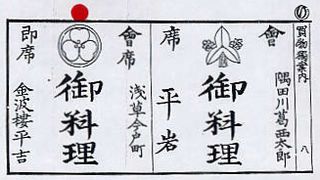 買物獨案内
八
會席
御料理
隅田川葛西太郎
平岩
會席
即席
御料理
浅草今戸町
金波樓平吉